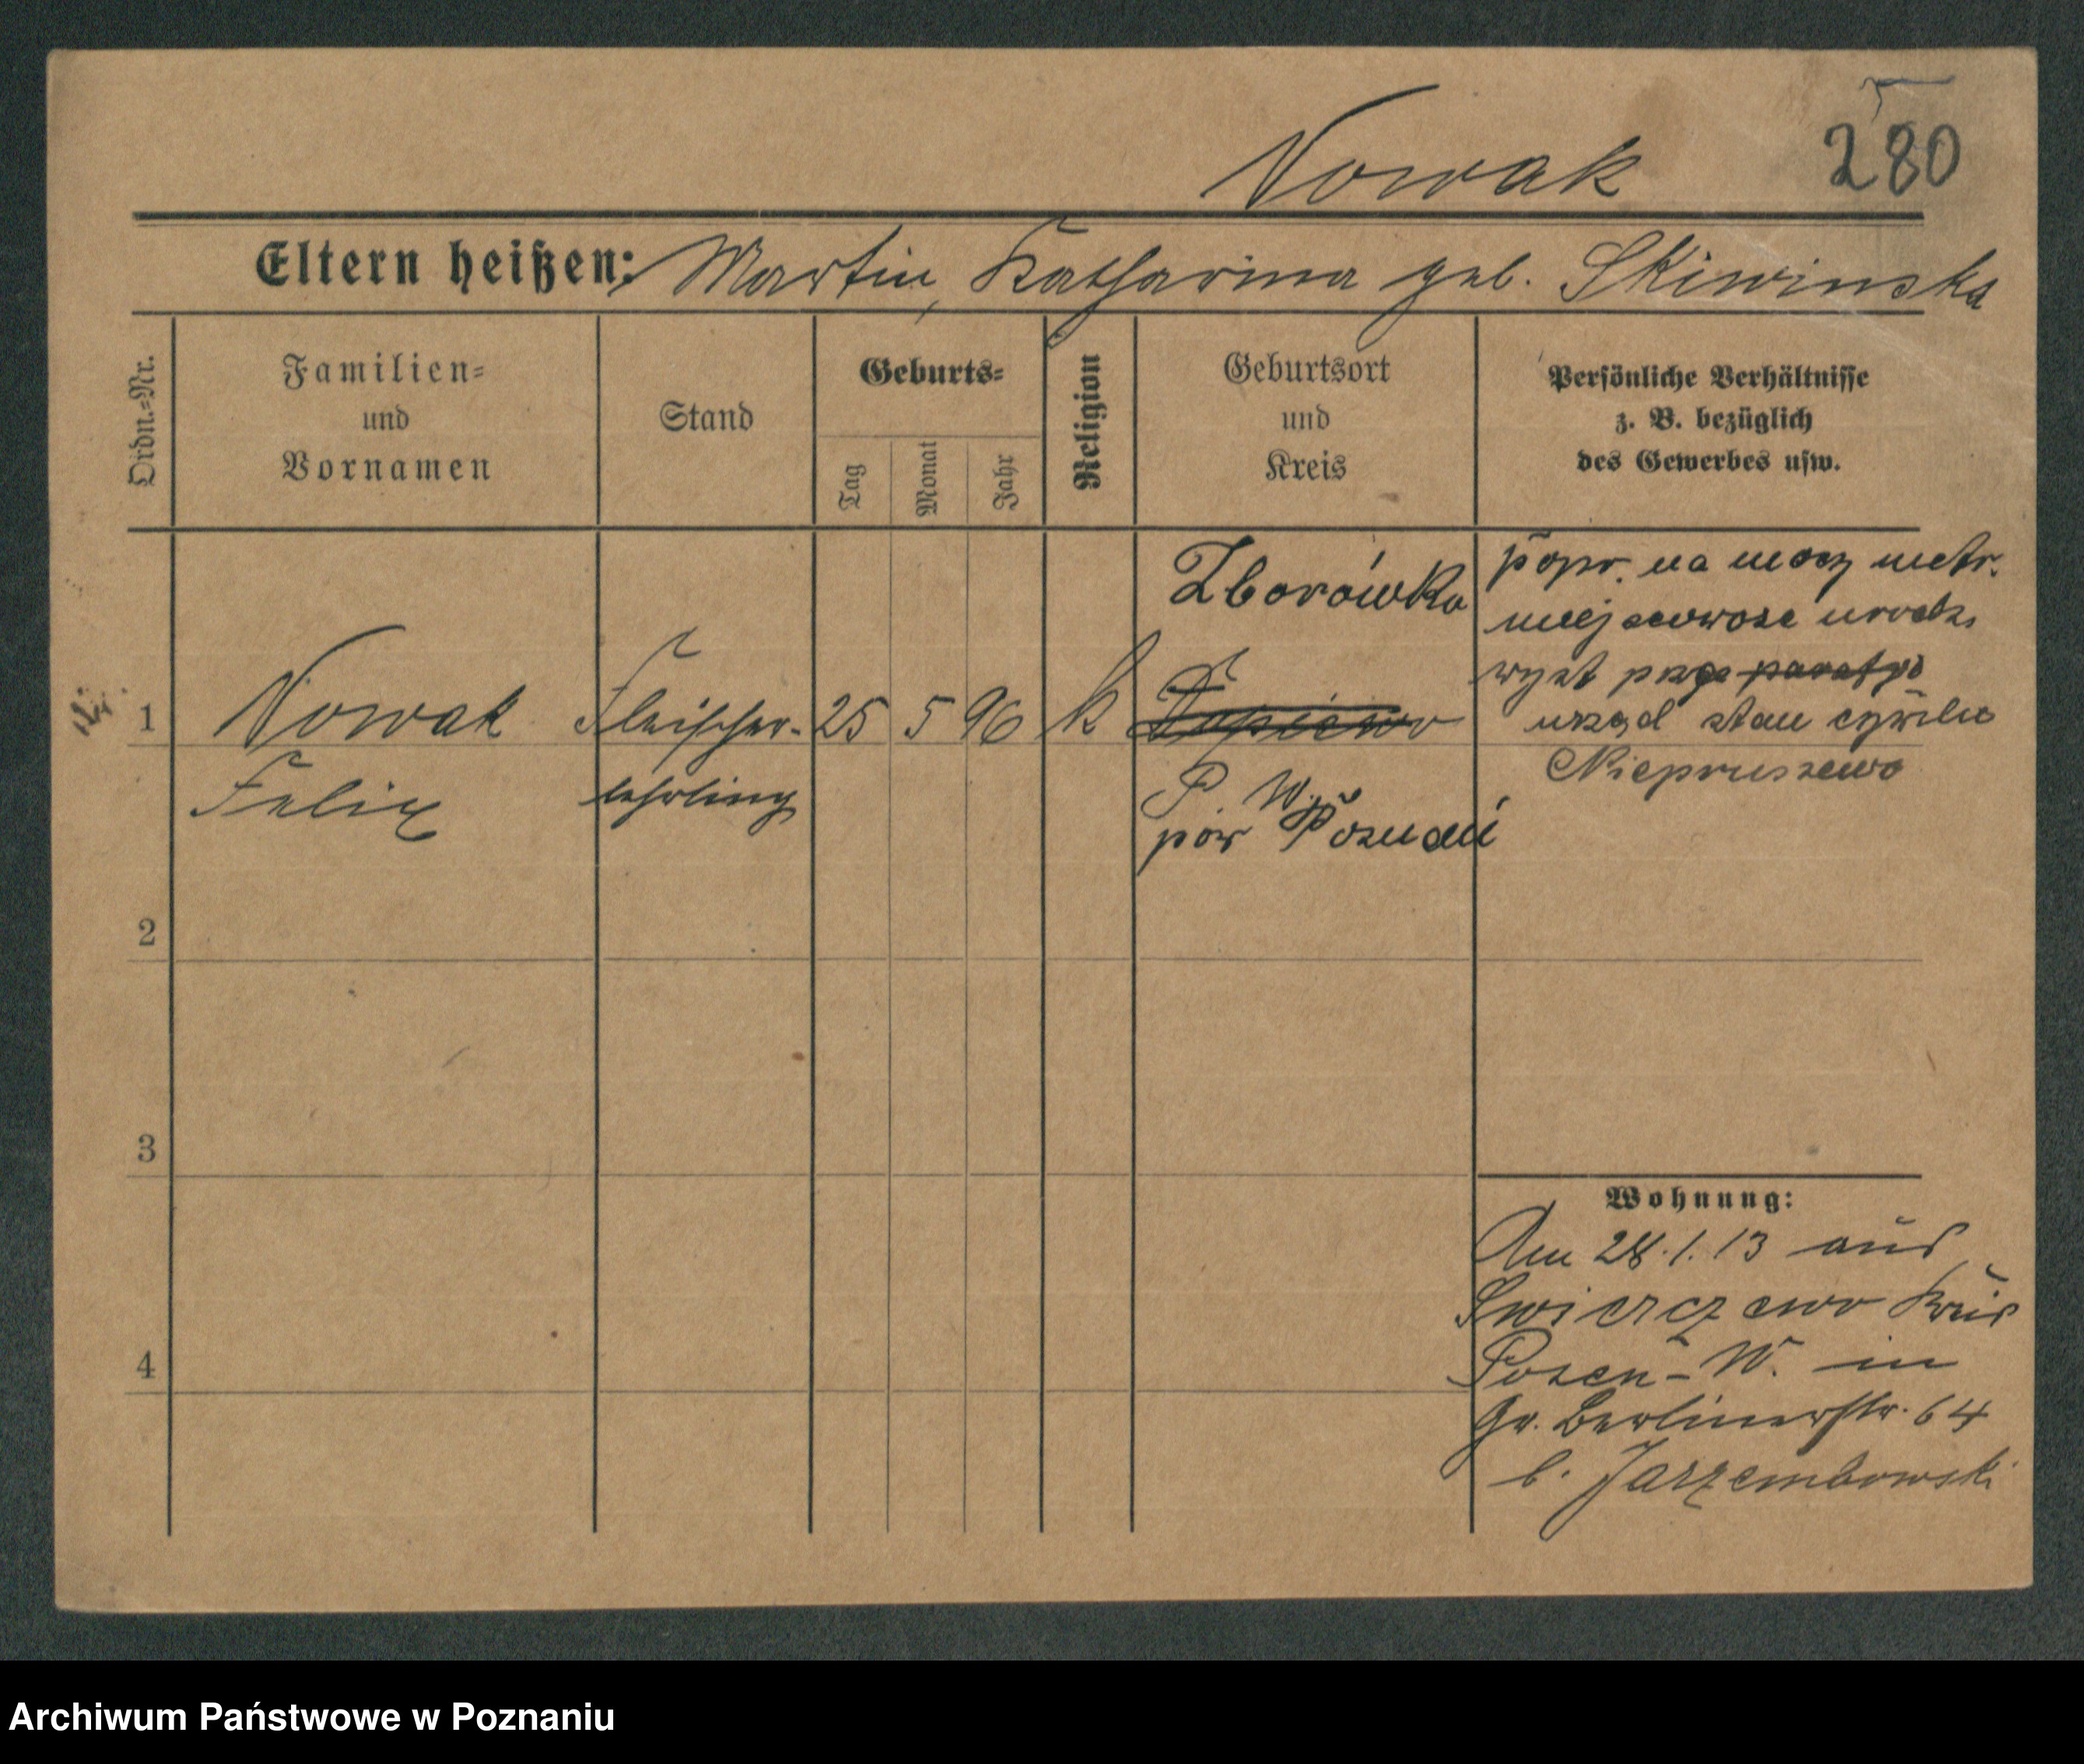 Nowak
280
Eltern heißen: Martin, Katharina geb. Skiwinska
Ordn.-Nr.
Familien- und Vornamen
Stand
Geburts-
Tag
Monat
Jahr
Religion
Geburtsort und Kreis
Persönliche Verhältnisse z. B. bezüglich des Gewerbes usw.
1
Nowak
Felix
Fleischer-
lehrling
25
5
96
k
Zborówko
Dopiewo
P. W.
pow Poznań
popr. na mocy metr.
miejscowość urodz.
wyst przez parafję
urząd stau cywiln
Niepruszewo
2
3
4
Wohnung:
Am 28.1.13 aus
Swierczewo Kreis
Posen-W. in
Gr. Berlinerstr. 64
b. Jarzembowski
Archiwum Państwowe w Poznaniu